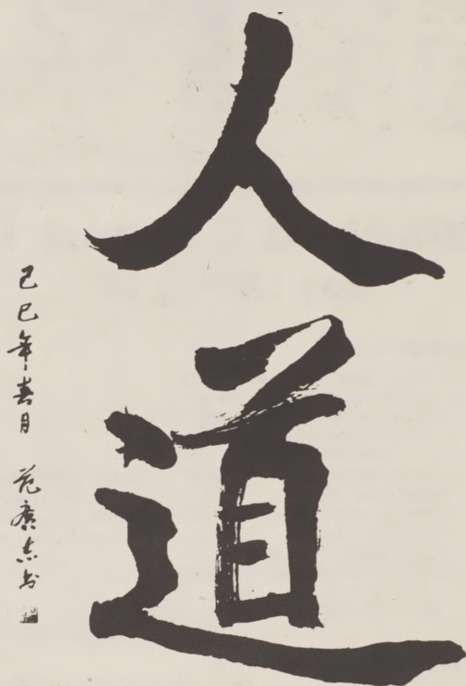 人道
己巳年春月 范广志书